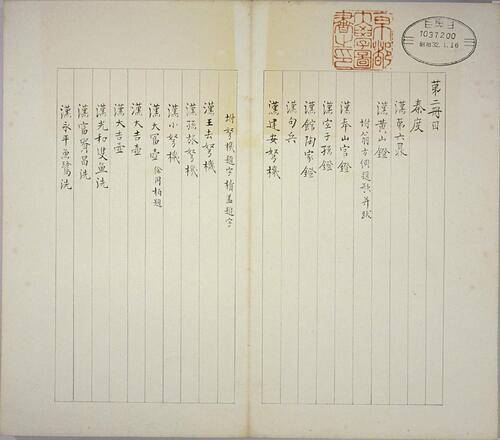 第二冊目
秦度
漢第六鼎
漢黃山鐙
附翁方綱題歌并跋
漢奉山宮鐙
漢空子孫鐙
漢館陶家鐙
漢句兵
漢建安弩機
附弩機題字積蓋題字
漢王去弩機
漢孫放弩機
漢小弩機
漢大富壺 徐同柏題
漢大吉壺
漢大吉壺
漢光和雙魚洗
漢富貴昌洗
漢永平魚鷺洗
京都
大學圖
書之印
1037200
昭和32.1.16